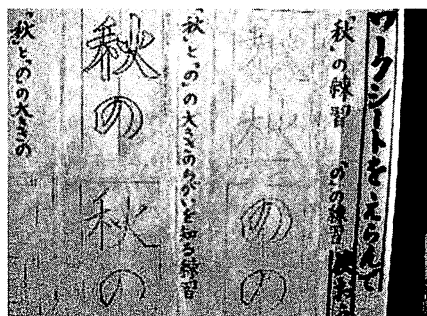 ワークシートをえらんで
「秋」の練習 「の」の練習
秋
秋
の
の
「秋」と「の」の大きさのちがいを知る練習
秋の
秋の
「秋」と「の」の大きさの